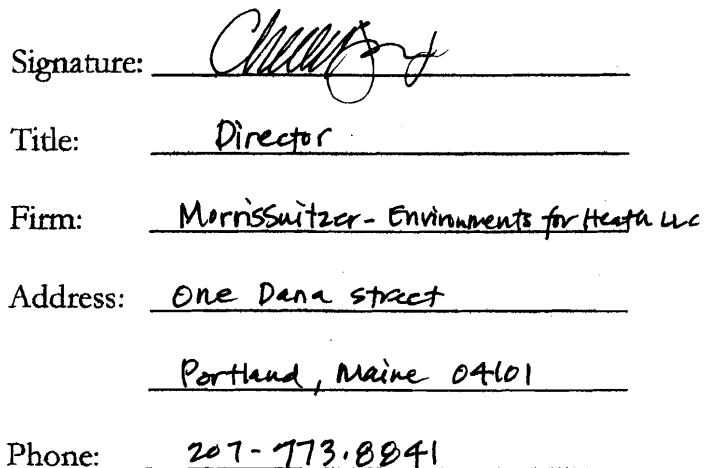 Signature:
Title: Director
Firm: MorrisSwitzer - Environments for Heath LLC
Address: One Dana street
Portland, Maine 04101
Phone: 207-773.8841